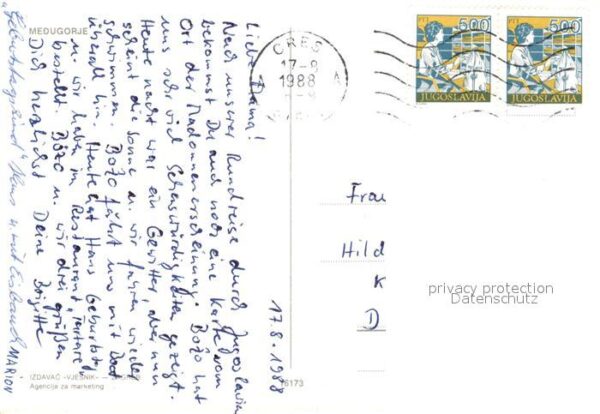 MEDUGORJE
17.8.1988
Liebe Mama!
Nach unserer Rundreise durch Jugoslavien
bekommst Du auch noch eine Karte vom
Ort der Madonnenerscheinung. Božo hat
uns sehr viel Sehenswürdigkeiten gezeigt.
Heute nacht war ein Gewitter, aber nun
scheint die Sonne u. wir fahren wieder
schwimmen. Božo fährt uns mit Boot
überall hin. Heute hat Hans Geburtstag
u. wir haben im Restaurant, Tartare
bestellt. Božo u. wir drei grüßen
Dich herzlichst Deine Brigitte
Hans u. mit
MARION
IZDAVAČ «VJESNIK» — ZAGREB
Agencija za marketing
16173
CRES
17-8
1988
PTT
500
JUGOSLAVIJA
PTT
500
JUGOSLAVIJA
Frau
Hild
K
D
privacy protection
Datenschutz